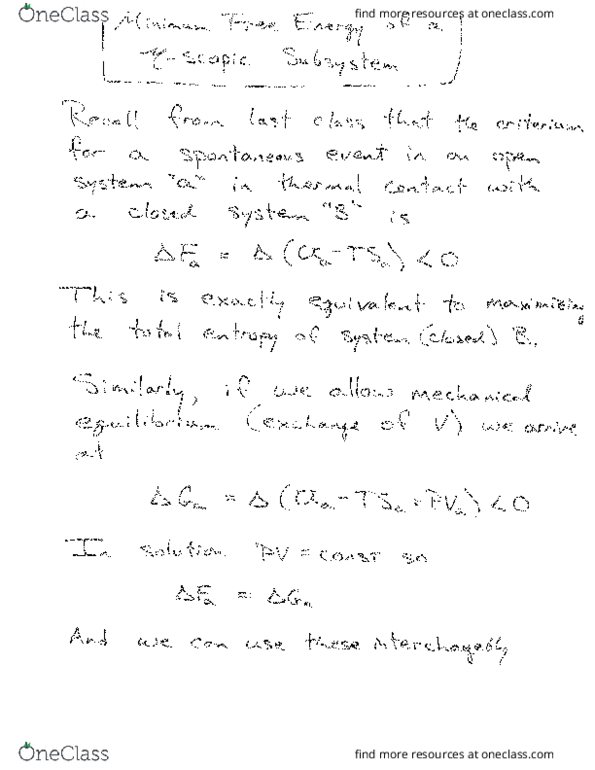 OneClass
find more resources at oneclass.com
Minimum Free Energy of a
η-scopic Subsystem
Recall from last class that the criterium
for a spontaneous event in an open
system "a" in thermal contact with
a closed system "B" is
ΔFₐ = Δ(Uₐ-TSₐ) < 0
This is exactly equivalent to maximizing
the total entropy of system (closed) B.
Similarly, if we allow mechanical
equilibrium (exchange of V) we arrive
at
ΔGₐ = Δ(Uₐ-TSₐ+PVₐ) < 0
In solution PV = const so
ΔFₐ = ΔGₐ
And we can use these interchageably
OneClass
find more resources at oneclass.com